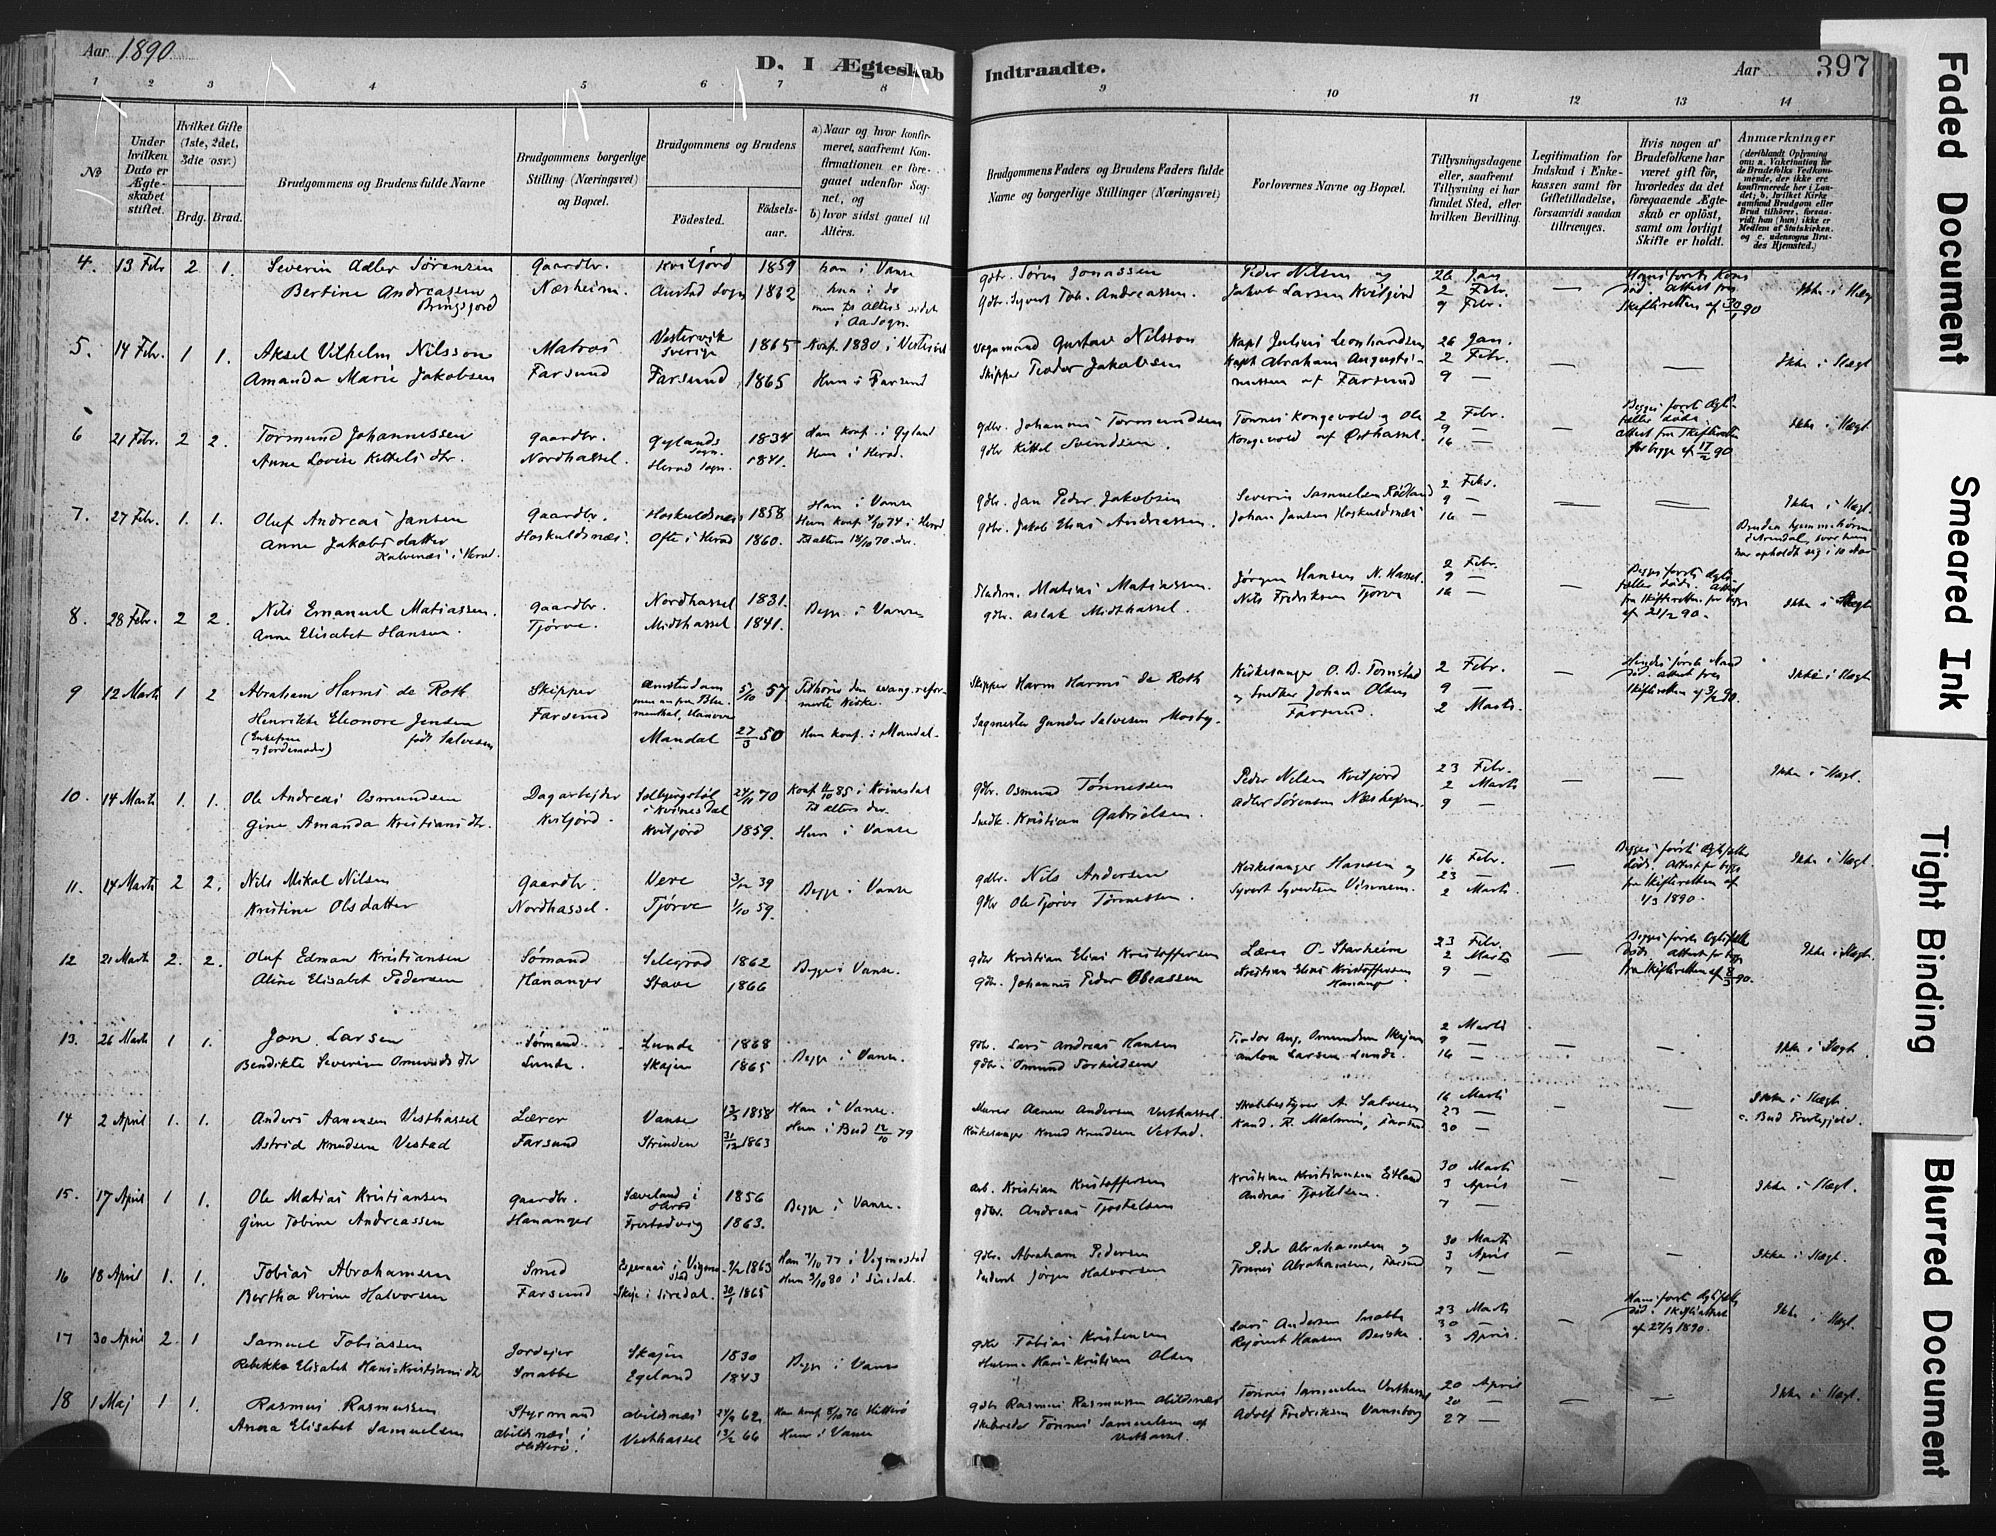 Aar 1890
D. I Ægteskab Indtraadte.
Aar
397
1 2 3 4 5 6 7 8 9 10 11 12 13 14
No
Under hvilken Dato er Ægteskabet stiftet.
Hvilket Gifte (1ste, 2det, 3die osv.)
Brdg. Brud.
Brudgommens og Brudens fulde Navne
Brudgommens borgerlige Stilling (Næringsvei) og Bopæl.
Brudgommens og Brudens
Fødested.
Fødselsaar.
a) Naar og hvor konfirmeret, saafremt Konfirmationen er foregaaet udenfor Sognet, og
b) hvor sidst gaaet til Alters.
Brudgommens Faders og Brudens Faders fulde Navne og borgerlige Stillinger (Næringsvei)
Forlovernes Navne og Bopæl.
Tillysningsdagene eller, saafremt Tillysning ei har fundet Sted, efter hvilken Bevilling.
Legitimation for Indskud i Enkekassen samt for Giftetilladelse, forsaavidt saadan tiltrænges.
Hvis nogen af Brudefolkene har været gift før, hvorledes da det foregaaende Ægteskab er opløst, samt om lovligt Skifte er holdt.
Anmærkninger
(deriblandt Oplysning om: a. Vakcination for de Brudefolks Vedkommende, der ikke ere konfirmerede her i Landet; b. hvilket Kirkesamfund Brudgom eller Brud tilhører, forsaavidt han (hun) ikke er Medlem af Statskirken. og c. udensogns Brudes Hjemsted.)
4. 13 Febr 2 1. Severin Adler Sørensen Gaardbr. Kvitjord 1859 han i Vanse gdbr. Søren Jonassen Peder Nilsen og 26 Jan
Bertine Andreassen Næsheim. Austad Sogn 1862 hun i do gdbr. Syvert Tob. Andreassen. Jakob Larsen Kvitjord 2 Febr. — Ikke i Slægt
Bringsjord 9 Febr. Skifteretten af 30/1 90
5. 14 Febr. 1 1. Aksel Vilhelm Nilsson Matros Vestervik Sverige 1865 Konf. 1880 i Vestervik Vognmand Gustav Nilsson Kapt Julius Leonhardsen 26 Jan.
Amanda Marie Jakobsen Farsund Farsund 1865 Hun i Farsund Skipper Teodor Jakobsen Kapt Abraham Augustinussen af Farsund 2 Febr. 9 — — — Ikke i Slægt
6 21 Febr. 2 2. Tormund Johannessen Gaardbr. Gylands Sogn. 1834 Han konf. i Gyland gdbr. Johannes Tormundsen Tønnes Kongevold og Ole 2 Febr. Begges første Ægtefæller døde.
Anne Lovise Kittelsdtr. Nordhassel. Herad Sogn. 1841. Hun i Herad. gdbr Kittel Svendsen. Kongevold af Østhassel. 9 — 16 — — Attest fra Skifteretten for begge af 17/2 90 Ikke i Slægt.
7. 27 Febr. 1. 1. Oluf Andreas Jansen Gaardbr. Hoskuldsnæs 1858 Han i Vanse gdbr. Jan Peder Jakobsen Severin Samuelsen Rødland 2 Febr. Ikke i Slægt.
Anne Jakobsdatter Hoskuldsnæs. Ofte i Herad 1860. Hun konf. 4/10 74 i Herad gdbr. Jakob Elias Andreassen. Johan Jansen Hoskuldsnæs 9 — 16 — — —
Kalvenæs i Herad.
8. 28 Febr. 2 2. Nils Emanuel Matiassen. Gaardbr. Nordhassel 1831. Begge i Vanse Matias Matiassen Jørgen Hansen N. Hassel. 2 Febr.
Anne Elisabet Hansen. Tjørve. Midthassel 1841. gdbr. Aslak Midthassel. Nils Fredriksen Tjørve 9 — 16 — — af 21/2 90. Ikke i Slægt
9 12 Marts 1 2 Abraham Harms de Roth Skipper Amsterdam 5/10 57. Tilhører den evang. reformerte Kirke. Skipper Harm Harms de Roth Kirkesanger O. B. Tomstad 2 Febr. Hendes første Mand død. Attest fra Skifteretten af 3/2 90. Ikke i Slægt.
Henrikke Eleonore Jensen Farsund Mandal 27/3 50 Hun konf. i Mandal. Sagmester Gunder Salvesen Mosby. og Snedker Johan Olsen Farsund. 9 — 2 Marts. —
(Enkefrue Jordemoder) født Salvesen
10. 14 Marts 1. 1. Ole Andreas Osmundsen Dagarbejder i Kvinesdal 24/11 70 Konf 85 i Kvinesdal gdbr. Osmund Tønnessen Peder Nilsen Kvitjord 23 Febr. Ikke i Slægt.
Gine Amanda Kristiansdtr. Kvitjord. Kvitjord 1859. Hun i Vanse Snedk. Kristian Gabrielsen. Adler Sørensen Næsheim. 2 Marts 9 — — —
11. 14 Marts 2 2. Nils Mikal Nilsen Gaardbr. Vere 3/12 39 Begge i Vanse gdbr. Nils Andersen Kirkesanger Hansen og 16 Febr. Begges første Ægtefæller døde. Attest for begge fra Skifteretten af 1/3 1890. Ikke i Slægt.
Kristine Olsdatter Nordhassel. Tjørve 1/10 59. gdbr Ole Tjørve Tønnessen. Syvert Syvertsen 23 — 2 Marts. —
12 21 Marts 2. 2. Oluf Edman Kristiansen Sømand Selegrod 1862 Begge i Vanse. gdbr Kristian Elias Kristoffersen Lærer O. Starheim 23 Febr. Begges første Ægtefæller døde. Attest for begge fra Skifteretten af 8/3 90. Ikke i Slægt.
Aline Elisabet Pedersen Hananger Stave 1866 gdbr. Johannes Peder Kristian Elias Kristoffersen Hananger 2 Marts 9 — —
13. 26 Marts 1 1. Jon Larsen Sømand Lunde 1868 Begge i Vanse. gdbr. Lars Andreas Hansen Teodor Aug. Osmundsen Skajem 2 Marts
Bendikte Severine Osmundsdtr Lunde. Skajem 1865 gdbr. Osmund Torkildsen Anton Larsen Lunde. 9 — 16 — — — Ikke i Slægt.
14 2 April 1. 1. Anders Aanensen Vesthassel Lærer Vanse 13/3 1858 Han i Vanse. Murer Aanen Andersen Vesthassel. Skolebestyrer A. Salvesen 16 Marts Ikke i Slægt.
Astrid Knudsen Vestad Farsund Strinden 31/12 1863 Hun i Bud 12/10 79 Kirkesanger Knud Knudsen Vestad. Kand. R. Malmin, Farsund 23 — 30 — — — c. Bud Prestegjeld.
15. 17 April 1 1. Ole Matias Kristiansen Gaardbr. Sæveland i Herad 1856 Begge i Vanse. arb. Kristian Kristoffersen Kristian Kristiansen Eitland 30 Marts Ikke i Slægt.
Gine Tobine Andreassen Hananger Frestadvig 1863. gdbr. Andreas Tjostelsen Andreas Tjostelsen. 3 April 7 — — —
16 18 April 1. 1. Tobias Abrahamsen Smed 1863 Han 7/10 77 i Vigmostad gdbr. Abraham Pedersen Peder Abrahamsen og 30 Marts Ikke i Slægt.
Bertha Serine Halvorsen Farsund i Siredal. 30/1 1865 Hun 3/10 80 i Siredal. Jørgen Halvorsen Tønnes Abrahamsen, Farsund 3 April 7 — — —
17 30 April 2. 1 Samuel Tobiassen Jordejer Skajem 1830 Begge i Vanse gdbr Tobias Kristensen Lars Andersen Snabbe 23 Marts Hans første Ægtefælle død. Skifteattest af 27/3 1890. Ikke i Slægt.
Rebekka Elisabet Hans-Kristiansdtr Snabbe Egeland 1843 Hans-Kristian Olsen Rejnert Hansen Beiske. 30 — 3 April. —
18 1 Maj 1 1. Rasmus Rasmussen Styrmand Abildsnæs 62. Han konf. 8/10 76 Hitterø gdbr Rasmus Rasmussen Abildsnæs Tønnes Samuelsen Vesthassel 20 April Ikke i Slægt.
Anna Elisabet Samuelsen Abildsnæs i Hitterø. Vesthassel 13/2 66 Hun i Vanse Skibsreder Tønnes Samuelsen af Vesthassel. Adolf Fredriksen Vanseborg 20 — 27 — — —
Faded Document
Smeared Ink
Tight Binding
Blurred Document